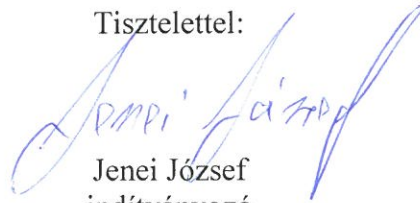 Tisztelettel:
Jenei József
Jenei József
indítványozó